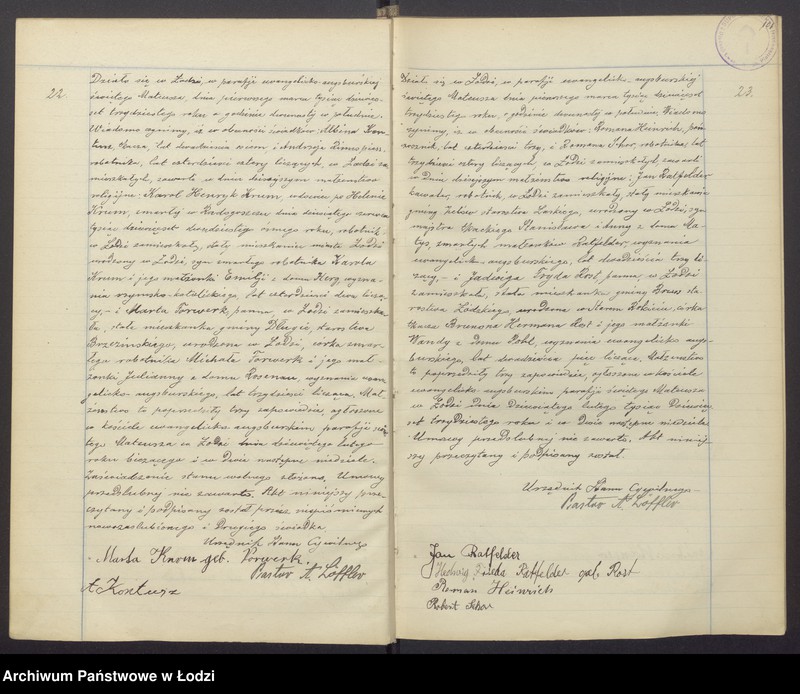 22.
Działo się w Łodzi, w parafji ewangelicko-augsburskiej
świętego Mateusza, dnia pierwszego marca tysiąc dziewięć-
set trzydziestego roku o godzinie dwunastej w południe.
Wiadomo czynimy, iż w obecności świadków Albina Kon-
tusza, lat dwudziestu ośmiu i Andrzeja
robotnika, lat czterdzieści cztery liczących, w Łodzi za-
mieszkałych, zawarto w dniu dzisiejszym małżeństwo
religijne: Karol Henryk Krum, wdowiec po Helenie
Krum, zmarłej w Radogoszczu dnia dziewiątego czerwca
tysiąc dziewięćset dwudziestego ósmego roku, robotnik
w Łodzi zamieszkały, stały mieszkaniec miasta Łodzi
urodzony w Łodzi, syn zmarłego robotnika Karola
Krum i jego małżonki Emilji z domu Herz, wyzna-
nia rzymsko-katolickiego, lat czterdzieści dwa liczą-
cy, - i Marta Forwerk, panna, w Łodzi zamieszka-
ła, stała mieszkanka gminy Długie, starostwa
Brzezińskiego, urodzona w Łodzi, córka zmar-
łego robotnika Michała Forwerk i jego mał-
żonki Julianny z domu Rosenau, wyznania ewan-
gelicko-augsburskiego, lat trzydzieści licząca. Mał-
żeństwo to poprzedziły trzy zapowiedzie, ogłoszone
w kościele ewangelicko-augsburskim parafji świę-
tego Mateusza w Łodzi dnia dziewiątego lutego
roku bieżącego i w dwie następne niedziele.
Zaświadczenie stanu wolnego złożono. Umowy
przedślubnej nie zawarto. Akt niniejszy prze-
czytany i podpisany został przez
nowozaślubionego i drugiego świadka.
Urzędnik Stanu Cywilnego
Marta Krum geb. Vorwerk.
Pastor A. Löffler
A. Kontusz
101
23.
Działo się w Łodzi, w parafji ewangelicko-augsburskiej
świętego Mateusza dnia pierwszego marca tysiąc dziewięćset
trzydziestego roku, o godzinie dwunastej w południe. Wiadomo
czynimy, iż w obecności świadków: Romana Heinrich,
lat czterdzieści trzy, i Romana Schor, robotnika, lat
trzydzieści cztery liczących, w Łodzi zamieszkałych zawarto
w dniu dzisiejszym małżeństwo religijne: Jan Ratfelder
kawaler, robotnik, w Łodzi zamieszkały, stały mieszkaniec
gminy Zelów starostwa Łaskiego, urodzony w Łodzi, syn
majstra tkackiego Stanisława i Anny z domu Ma-
tys, zmarłych małżonków Ratfelder, wyznania
ewangelicko-augsburskiego, lat dwadzieścia trzy li-
czący, - i Jadwiga Fryda Rost, panna, w Łodzi
zamieszkała, stała mieszkanka gminy Brus sta-
rostwa Łódzkiego, urodzona w Starem Rokiciu, córka
tkacza Brunona Hermana Rost i jego małżonki
Wandy z domu Pohl, wyznania ewangelicko-augs-
burskiego, lat dwadzieścia pięć licząca. Małżeństwo
to poprzedziły trzy zapowiedzie, ogłoszone w kościele
ewangelicko-augsburskim parafji świętego Mateusza
w Łodzi dnia dziewiątego lutego tysiąc dziewię-
set trzydziestego roku i w dwie następne niedziele.
Umowy przedślubnej nie zawarto. Akt niniej-
szy przeczytany i podpisany został.
Urzędnik Stanu Cywilnego
Pastor A. Löffler
Jan Ratfelder
Hedwig Frieda Ratfelder geb. Rost
Roman Heinrich
Robert Schor
Archiwum Państwowe w Łodzi